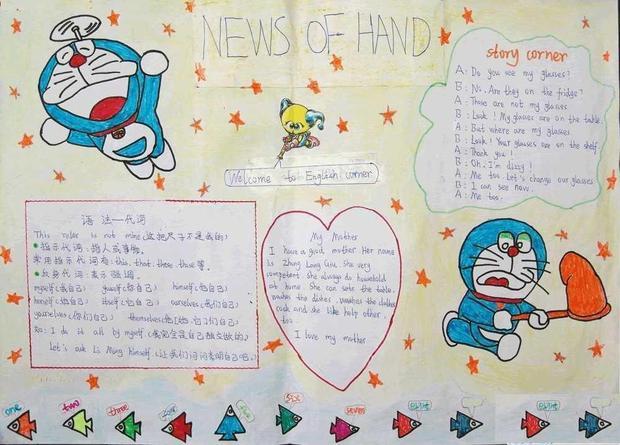 NEWS OF HAND
story corner
A: Do you see my glasses?
B: No. Are they on the fridge?
A: Those are not my glasses
B: Look! My glasses are on the table.
A: But where are my glasses
B: Look! Your glasses are on the shelf.
A: Thank you!
B: Oh. I'm dizzy!
A: Me too. Let's change our glasses
B: I can see now.
A: Me too.
Welcome to English corner
语法—代词
This ruler is not mine (这把尺子不是我的)
指示代词:指人或事物。
常用指示代词有: this. that. these. those等。
反身代词:表示强调。
myself (我自己) yourself (你自己) himself (他自己)
herself (她自己) itself (它自己) ourselves (我们自己)
yourselves (你们自己) themselves (他们她们它们自己)
I do it all by myself (我完全是自己独立做的)
Let's ask Li Ming himself (让我们问问李明自己吧)
My Mother
I have a good mother Her name
is Zhang Long She very
competent. she always do household
at home She can sets the table.
washes the dishes. washes the clothes
cook and she like help other.
too.
I love my mother
one
two
three
four
five
six
seven
eight
eight